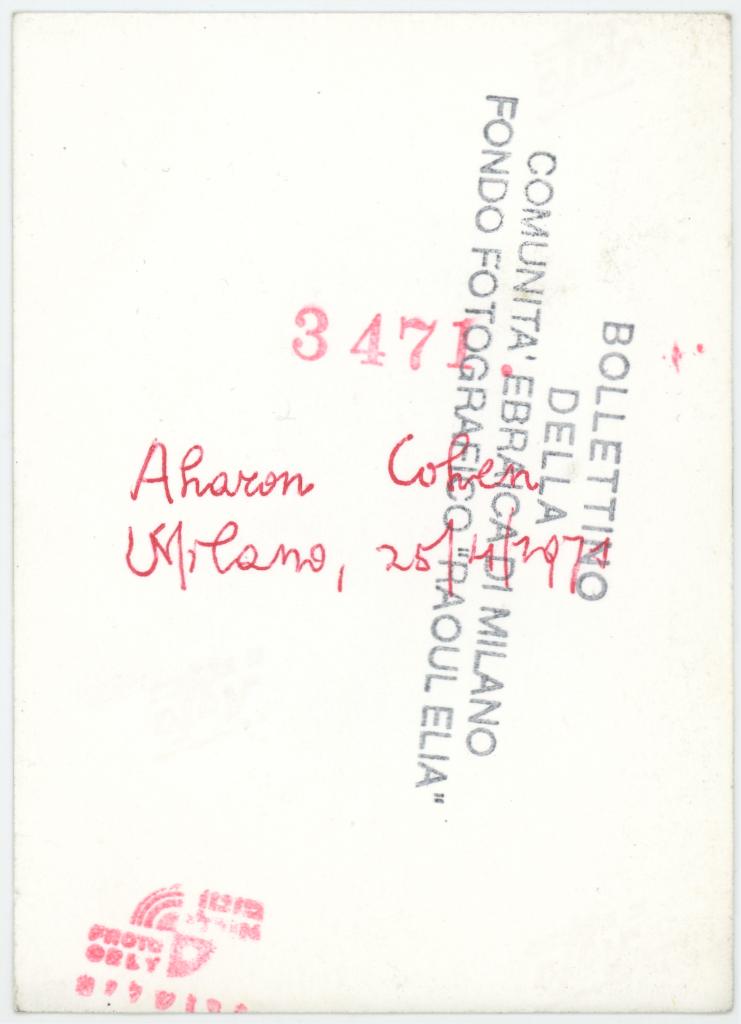 BOLLETTINO
DELLA
COMUNITA' EBRAICA DI MILANO
FONDO FOTOGRAFICO "RAOUL ELIA"
3471.
Aharon Cohen
Milano, 25/4/1971
PHOTO
ORLY